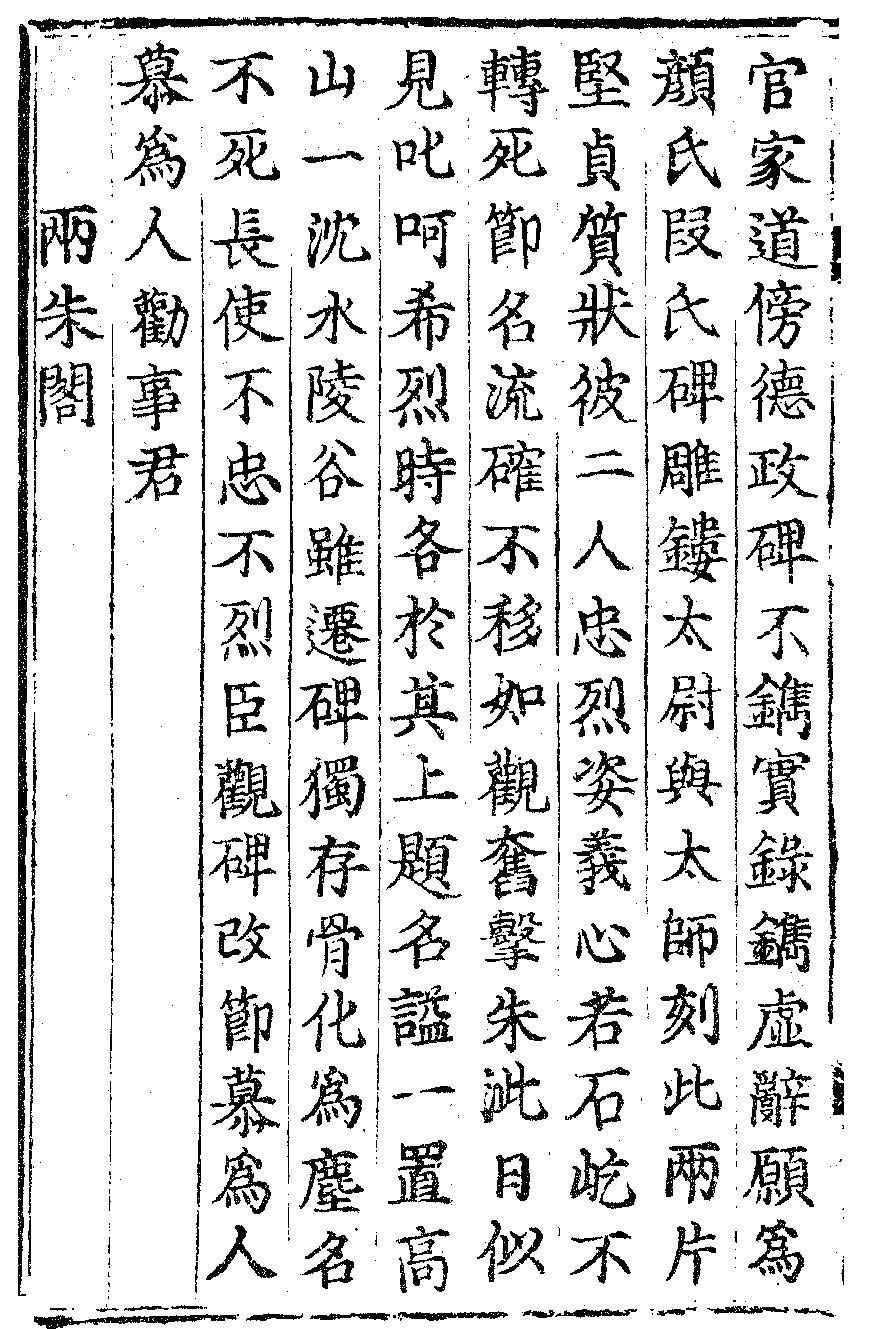 官家道傍德政碑不鐫實錄鐫虛辭願爲
顏氏段氏碑雕鏤太尉與太師刻此兩片
堅貞質狀彼二人忠烈姿義心若石屹不
轉死節名流確不移如觀奮擊朱泚日似
見叱呵希烈時各於其上題名諡一置高
山一沈水陵谷雖遷碑獨存骨化爲塵名
不死長使不忠不烈臣觀碑改節慕爲人
慕爲人勸事君
兩朱閣